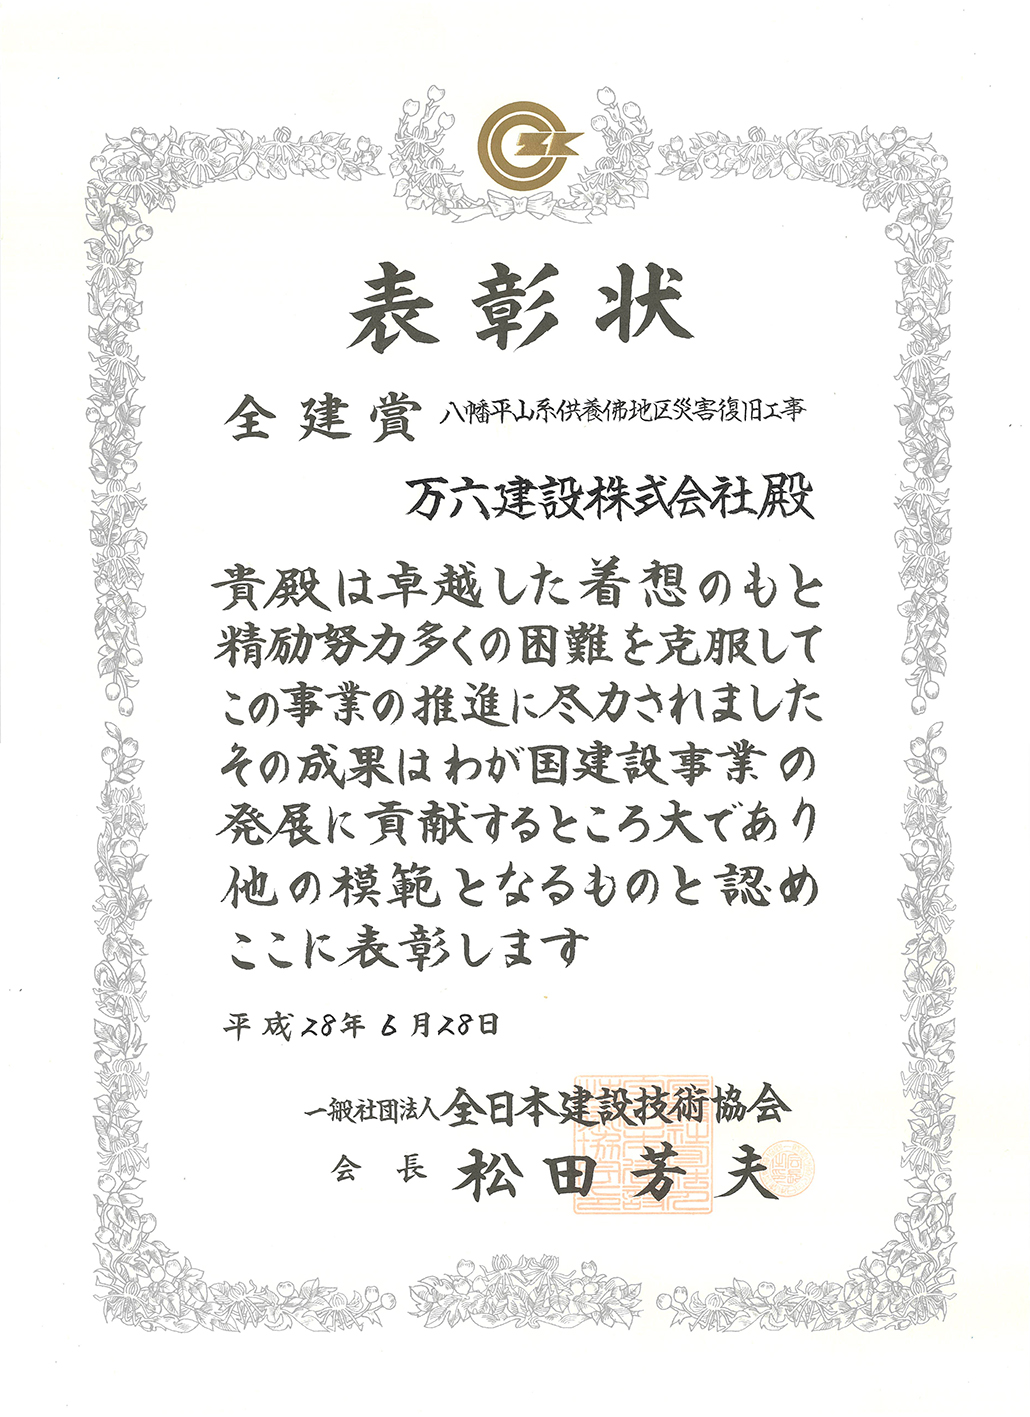 表彰状
全建賞 八幡平山系供養佛地区災害復旧工事
万六建設株式会社殿
貴殿は卓越した着想のもと
精励努力多くの困難を克服して
この事業の推進に尽力されました
その成果はわが国建設事業の
発展に貢献するところ大であり
他の模範となるものと認め
ここに表彰します
平成28年6月28日
一般社団法人全日本建設技術協会
会長 松田芳夫